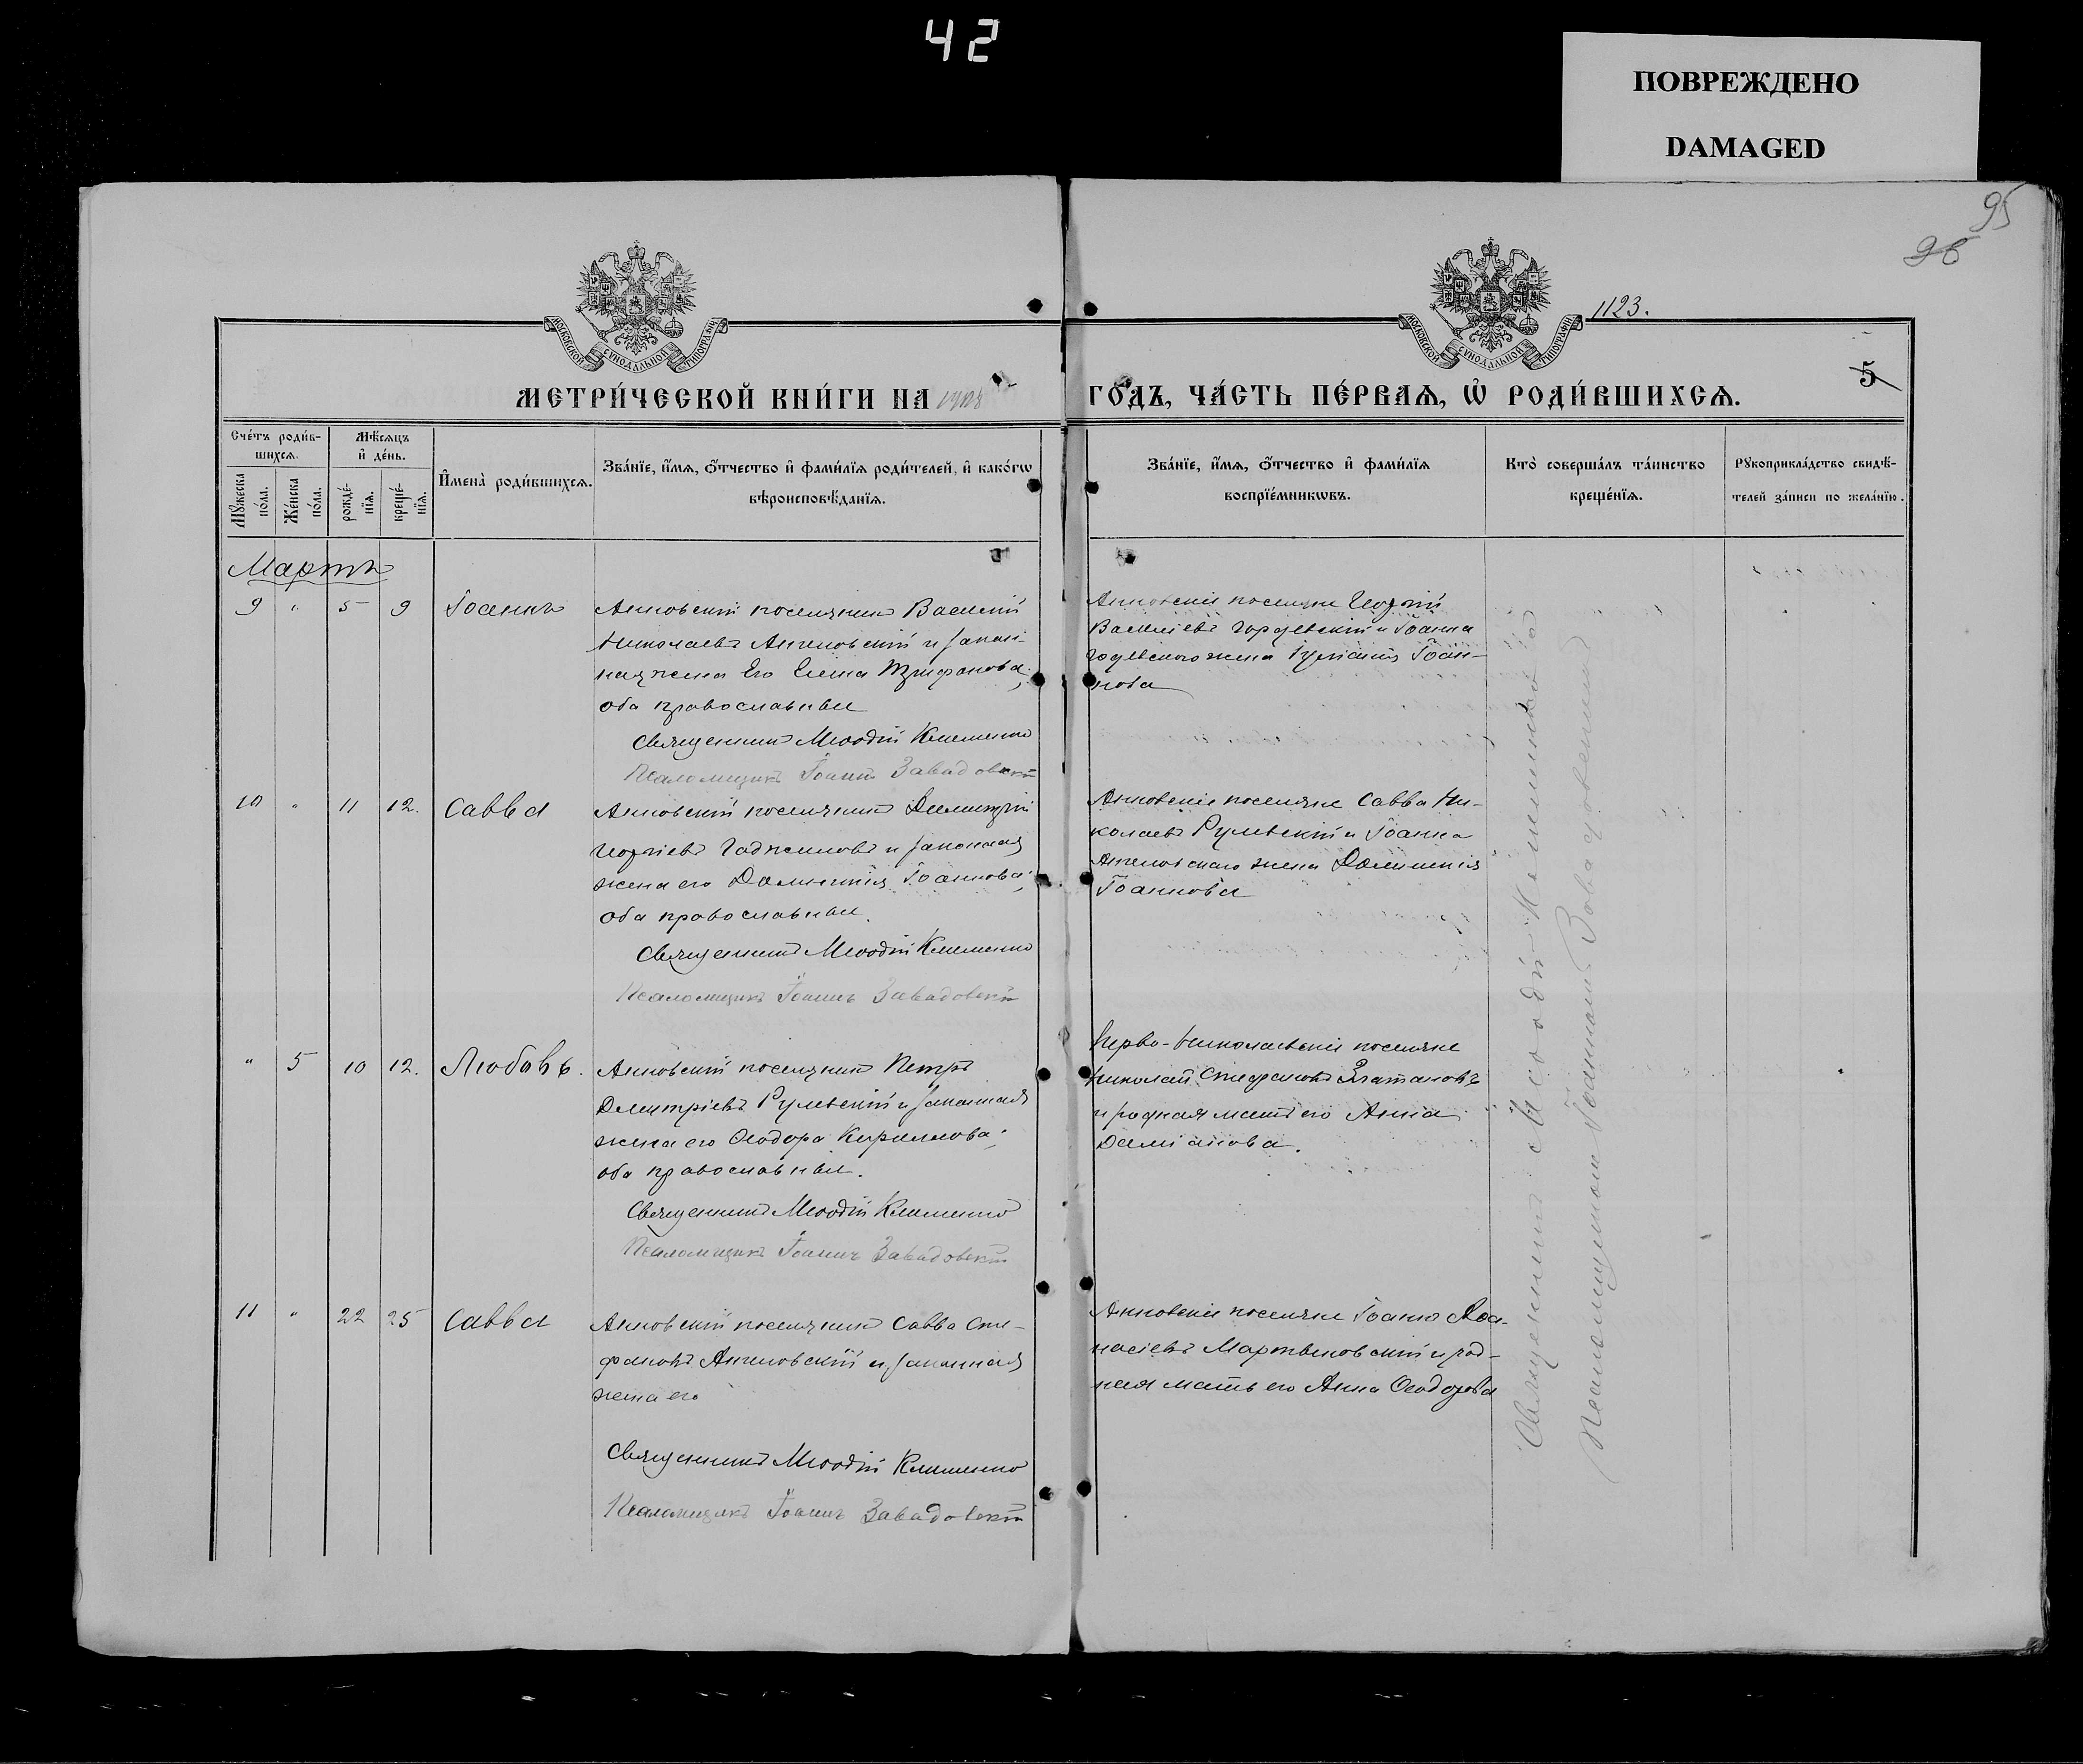 42
ПОВРЕЖДЕНО
DAMAGED
95
96
1123.
МОСКОВСКОЙ СУНОДАЛЬНОЙ ТИПОГРАФІИ
МОСКОВСКОЙ СУНОДАЛЬНОЙ ТИПОГРАФІИ
5
МЕТРИ́ЧЕСКОЙ КНИ́ГИ НА
ГО́ДЪ, ЧА́СТЬ ПЕ́РВАѦ, Ѽ РОДИ́ВШИХСѦ.
Сче́тъ роди́в-
шихсѧ.
Мꙋ́жеска по́ла.
Же́нска по́ла.
Мѣ́сѧцъ
и҆ де́нь.
рожде́-
нїѧ.
креще́-
нїѧ.
И҆мена̀ роди́вшихсѧ.
Зва́нїе, и҆́мѧ, ѻ҆́тчество и҆ фами́лїѧ роди́телей, и҆ како́гѡ
вѣроисповѣ́данїѧ.
Зва́нїе, и҆́мѧ, ѻ҆́тчество и҆ фами́лїѧ
воспрїе́мникѡвъ.
Кто̀ соверша́лъ та́инство
креще́нїѧ.
Рꙋкоприкла́дство свидѣ́-
телей за́писи по жела́нїю.
Мартъ
9 " 5 9 Іоаннъ
Анновскій поселянинъ Василій
Николаевъ Ангеловскій и закон-
ная жена его Елена Трифонова,
оба православные
Священникъ Меѳодій Клименко
Псаломщикъ Іоаннъ Завадовскій
Анновскіе поселяне Георгій
Василіевъ Годлевскій и Іоанна
Годлевскаго жена Іоан-
нова
10 " 11 12. Савва
Анновскій поселянинъ Димитрій
Георгіевъ Гаджиловъ и законная
жена его Домникія Іоаннова;
оба православные.
Священникъ Меѳодій Клименко
Псаломщикъ Іоаннъ Завадовскій
Анновскіе поселяне Савва Ни-
колаевъ Рулевскій и Іоанна
Ангеловскаго жена Домникія
Іоаннова
" 5 10 12. Любовь.
Анновскій поселянинъ Петръ
Димитріевъ Рулевскій и законная
жена его Ѳеодора Кириллова;
оба православные.
Священникъ Меѳодій Клименко
Псаломщикъ Іоаннъ Завадовскій
Перво-Николаевскіе поселяне
Николай Стефановъ Златановъ
и родная мать его Анна
Даміанова.
11 " 22 25 Савва
Анновскій поселянинъ Савва Сте-
фановъ Ангеловскій и законная
жена его
Священникъ Меѳодій Клименко
Псаломщикъ Іоаннъ Завадовскій
Анновскіе поселяне Іоаннъ Аѳа-
насіевъ Мартыновскій и род-
ная мать его Анна Ѳеодорова
Священникъ Меѳодій Клименко
Псаломщикомъ Іоанномъ Завадовскимъ